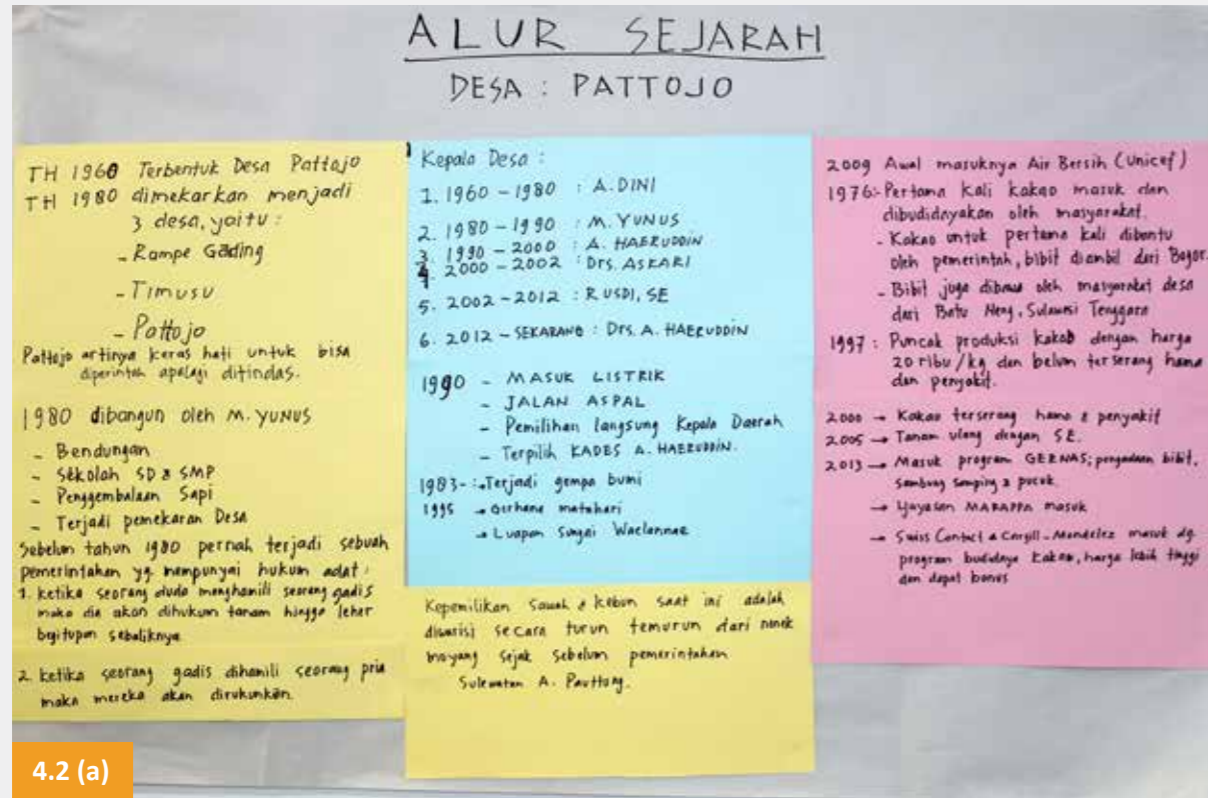 ALUR SEJARAH
DESA : PATTOJO
TH 1960 Terbentuk Desa Pattojo
TH 1980 dimekarkan menjadi
3 desa, yaitu :
- Rompe Gading
- Timusu
- Pattojo
Pattojo artinya keras hati untuk bisa
diperintah apalagi ditindas.
1980 dibangun oleh M. YUNUS
- Bendungan
- Sekolah SD & SMP
- Penggembalaan Sapi
- Terjadi pemekaran Desa
Sebelum tahun 1980 pernah terjadi sebuah
pemerintahan yg mempunyai hukum adat :
1. ketika seorang duda menghamili seorang gadis
maka dia akan dihukum tanam hingga leher
begitupun sebaliknya
2. ketika seorang gadis dihamili seorang pria
maka mereka akan dirukunkan.
Kepala Desa :
1. 1960 - 1980 : A. DINI
2. 1980 - 1990 : M. YUNUS
3. 1990 - 2000 : A. HAERUDDIN
4. 2000 - 2002 : Drs. ASKARI
5. 2002 - 2012 : RUSDI, SE
6. 2012 - SEKARANG : Drs. A. HAERUDDIN
1990 - MASUK LISTRIK
- JALAN ASPAL
- Pemilihan langsung Kepala Daerah
- Terpilih KADES A. HAERUDDIN.
1983 - : → Terjadi gempa bumi
1995 → Gerhana matahari
→ Luapan Sungai Waelannae
Kepemilikan Sawah & Kebun saat ini adalah
diwarisi secara turun temurun dari nenek
moyang sejak sebelum pemerintahan
Sulewatan A. Pauttong.
2009 Awal masuknya Air Bersih (Unicef)
1976 :- Pertama Kali kakao masuk dan
dibudidayakan oleh masyarakat.
- Kakao untuk pertama kali dibantu
oleh pemerintah, bibit diambil dari Bogor.
- Bibit juga dibawa oleh masyarakat desa
dari Batu Neng, Sulawesi Tenggara
1997 : Puncak produksi kakao dengan harga
20 ribu/kg dan belum terserang hama
dan penyakit.
2000 → Kakao terserang hama & penyakit
2005 → Tanam ulang dengan SE.
2013 → Masuk program GERNAS; pengadaan bibit,
Sambung samping & pucuk.
→ Yayasan MARAPPA masuk
→ Swiss Contact & Cargill - Mondelez masuk dg
program budidaya kakao, harga lebih tinggi
dan dapat bonus
4.2 (a)